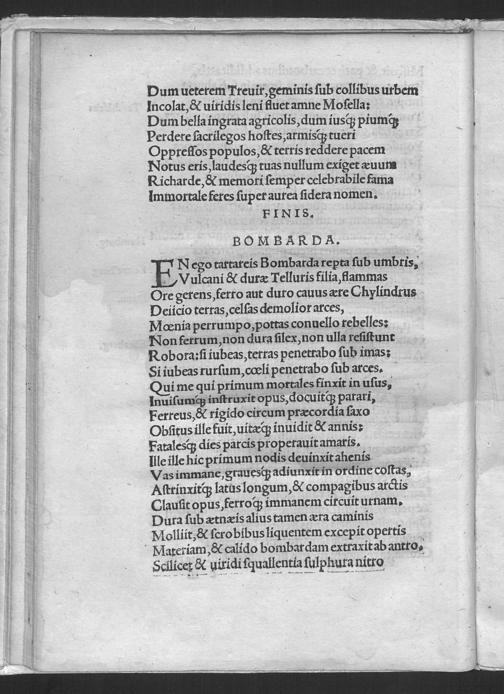 Dum ueterem Treuir, geminis sub collibus urbem
Incolat, & uiridis leni fluet amne Mosella:
Dum bella ingrata agricolis, dum iusq́ piumq́
Perdere sacrilegos hostes, armisq́ tueri
Oppressos populos, & terris reddere pacem
Notus eris, laudesq́ tuas nullum exiget æuum
Richarde, & memori semper celebrabile fama
Immortale feres super aurea sidera nomen.
FINIS.
BOMBARDA.
EN ego tartareis Bombarda repta sub umbris,
Vulcani & duræ Telluris filia, flammas
Ore gerens, ferro aut duro cauus ære Chylindrus
Deiicio terras, celsas demolior arces,
Mœnia perrumpo, pottas conuello rebelles:
Non ferrum, non dura silex, non ulla resistunt
Robora: si iubeas, terras penetrabo sub imas:
Si iubeas rursum, cœli penetrabo sub arces.
Qui me qui primum mortales finxit in usus,
Inuisumq́ instruxit opus, docuitq́ parari,
Ferreus, & rigido circum præcordia saxo
Obsitus ille fuit, uitæq́ inuidit & annis:
Fatalesq́ dies parcis properauit amaris.
Ille ille hic primum nodis deuinxit ahenis
Vas immane, grauesq́ adiunxit in ordine costas,
Astrinxitq́ latus longum, & compagibus arctis
Clausit opus, ferroq́ immanem circuit urnam.
Dura sub ætnæis alius tamen æra caminis
Molliit, & scrobibus liquentem excepit opertis
Materiam, & calido bombardam extraxit ab antro,
Scilicet & uiridi squallentia sulphura nitro